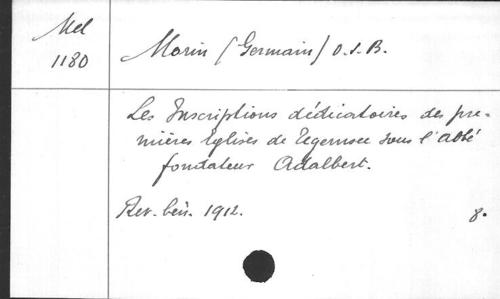 Mel
1180
Morin (Germain) O.S.B.
Les Inscriptions dédicatoires des pre-
mières Églises de Tegernsee sous l'abbé
fondateur Adalbert.
Rev. bén. 1912.
8.